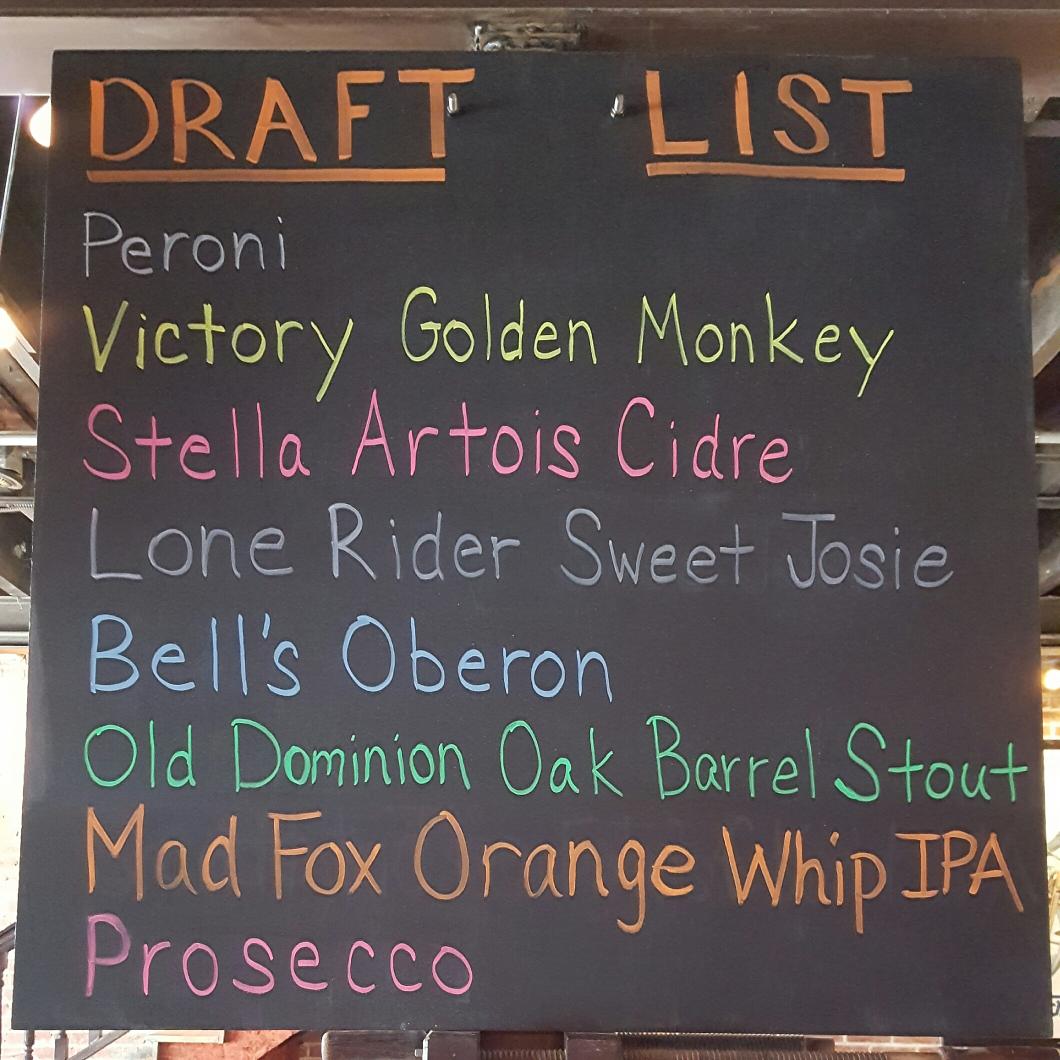 DRAFT LIST
Peroni
Victory Golden Monkey
Stella Artois Cidre
Lone Rider Sweet Josie
Bell's Oberon
Old Dominion Oak Barrel Stout
Mad Fox Orange Whip IPA
Prosecco